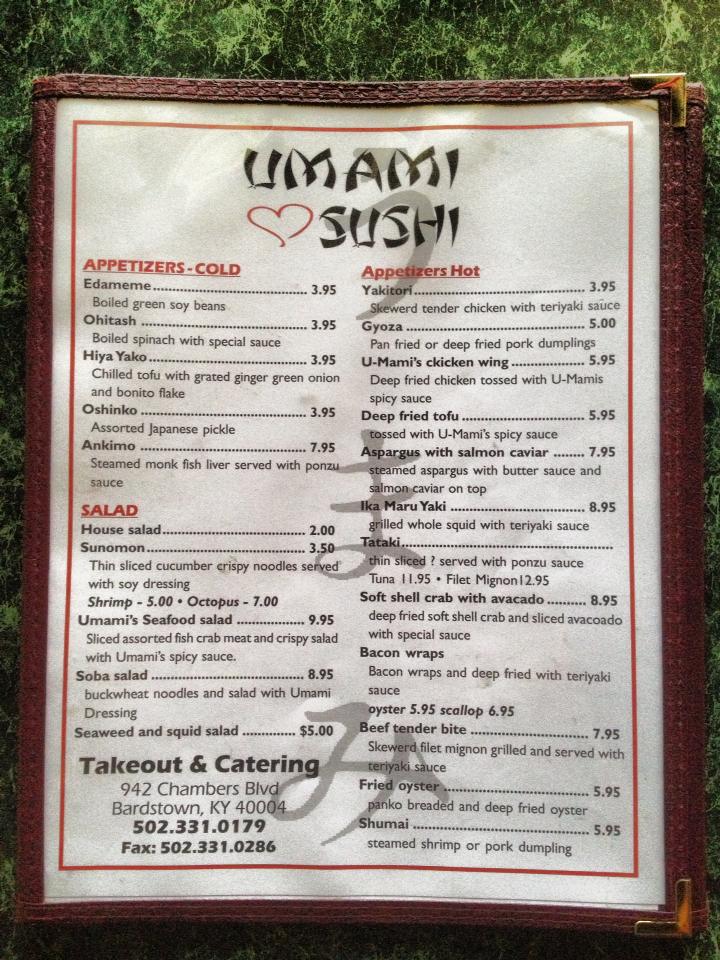 UMAMI
SUSHI
APPETIZERS - COLD
Edameme 3.95
Boiled green soy beans
Ohitash 3.95
Boiled spinach with special sauce
Hiya Yako 3.95
Chilled tofu with grated ginger green onion
and bonito flake
Oshinko 3.95
Assorted Japanese pickle
Ankimo 7.95
Steamed monk fish liver served with ponzu
sauce
SALAD
House salad 2.00
Sunomon 3.50
Thin sliced cucumber crispy noodles served
with soy dressing
Shrimp - 5.00 • Octopus - 7.00
Umami's Seafood salad 9.95
Sliced assorted fish crab meat and crispy salad
with Umami's spicy sauce.
Soba salad 8.95
buckwheat noodles and salad with Umami
Dressing
Seaweed and squid salad $5.00
Takeout & Catering
942 Chambers Blvd
Bardstown, KY 40004
502.331.0179
Fax: 502.331.0286
Appetizers Hot
Yakitori 3.95
Skewerd tender chicken with teriyaki sauce
Gyoza 5.00
Pan fried or deep fried pork dumplings
U-Mami's ckicken wing 5.95
Deep fried chicken tossed with U-Mamis
spicy sauce
Deep fried tofu 5.95
tossed with U-Mami's spicy sauce
Aspargus with salmon caviar 7.95
steamed aspargus with butter sauce and
salmon caviar on top
Ika Maru Yaki 8.95
grilled whole squid with teriyaki sauce
Tataki
thin sliced ? served with ponzu sauce
Tuna 11.95 • Filet Mignon12.95
Soft shell crab with avacado 8.95
deep fried soft shell crab and sliced avacoado
with special sauce
Bacon wraps
Bacon wraps and deep fried with teriyaki
sauce
oyster 5.95 scallop 6.95
Beef tender bite 7.95
Skewerd filet mignon grilled and served with
teriyaki sauce
Fried oyster 5.95
panko breaded and deep fried oyster
Shumai 5.95
steamed shrimp or pork dumpling
うまみ